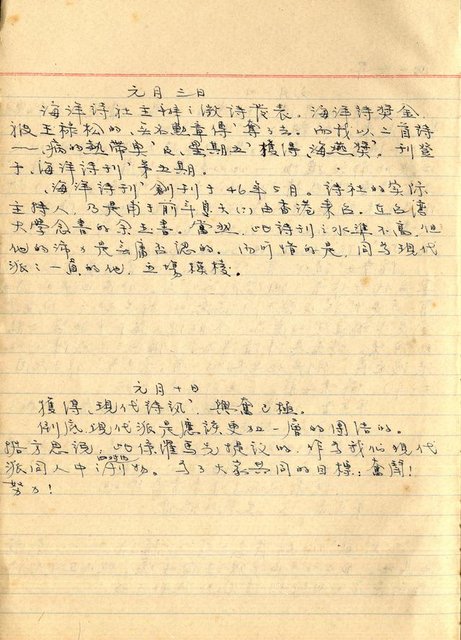 元月三日
海洋詩社主辦之徵詩發表。海洋詩獎金
被王祿松的「無名勳章得」奪了去。而我以二首詩
——「病的熱帶魚」及「星期五」獲得「海燕獎」。刊登
于「海洋詩刊」第五期。
「海洋詩刊」創刊于46年5月。詩社的實際
主持人，乃是用于前年自由香港來台。在台灣
大學念書的余玉書。當然，此詩刊之水準不高，但
他的努力是無庸否認的。而可惜的是，同為現代
派之一員的他，立場模稜。
元月十日
獲得「現代詩訊」，興奮已極。
例底，現代派是應該更加一層的團結的。
據方思說，此係羅馬先提議的，作為我們現代
派同人中之刊物。為了大家共同的目標，奮鬪！
努力！